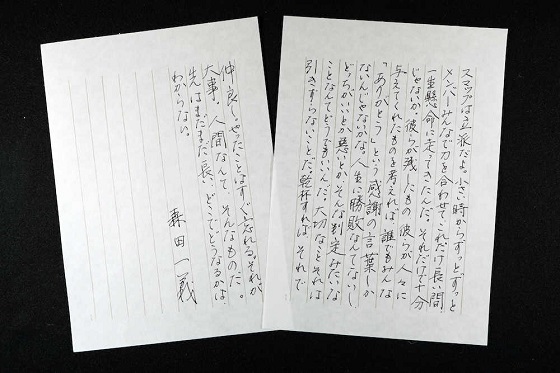 スマップは立派だよ。小さい時からずっとずっと
メンバーみんなで力を合わせて、これだけ長い間
一生懸命に走ってきたんだ。それだけで十分
じゃないか。彼らが残したもの彼らが人々に
与えてくれたものを考えれば、誰でもみんな
「ありがとう」という感謝の言葉しか
ないんじゃないかな。人生に勝敗なんてないし
どっちがいいとか悪いとかそんな判定みたいな
ことなんてどうでもいいんだ。大切なことそれは
引きずらないことだ。乾杯すれば それで
仲良し。やったことはすぐ忘れる。それが
大事。人間なんて、そんなものだ。
先はまだまだ長い、どこでどうなるかは
わからない。
森田一義